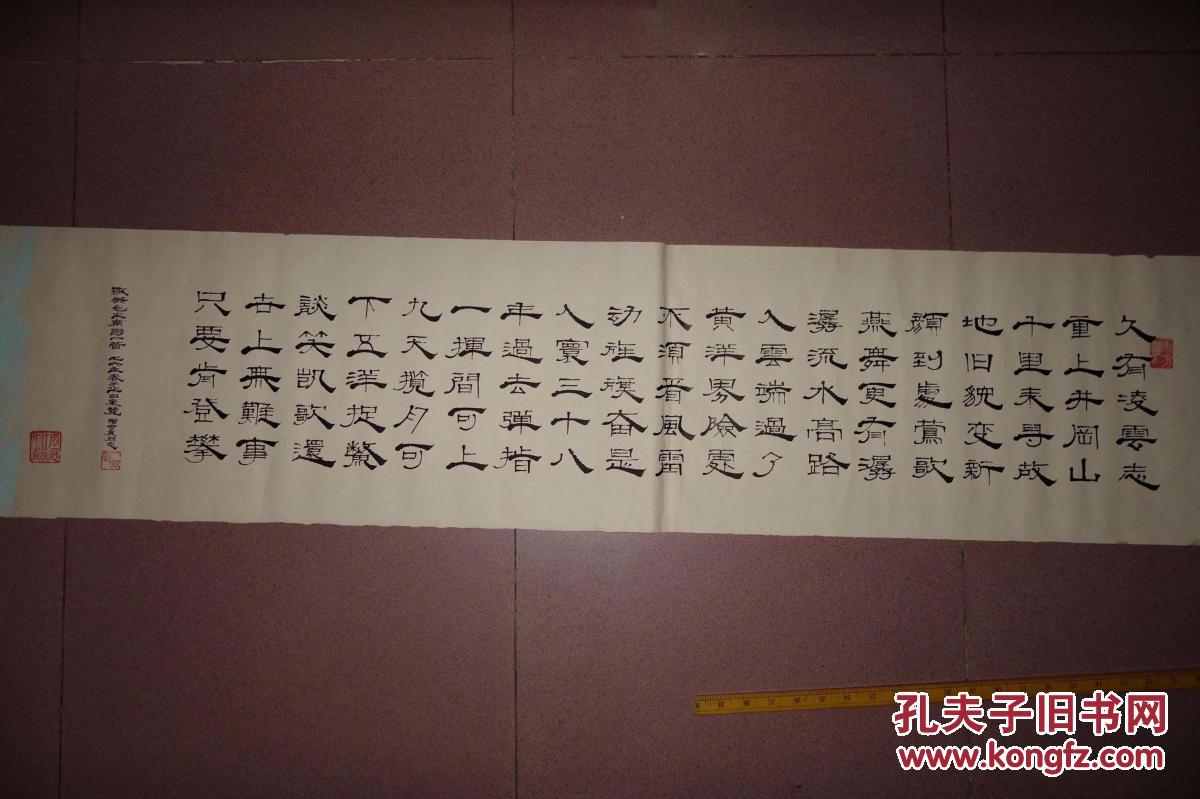 久有凌雲志
重上井岡山
千里来寻故
地旧貌变新
顔到處鶯歌
燕舞更有潺
潺流水高路
入雲端過了
黄洋界險處
不須看風雷
动旌旗奋是
人寰三十八
年過去彈指
一揮間可上
九天攬月可
下五洋捉鱉
談笑凯歌還
世上無難事
只要肯登攀
毛主席詞一首
孔夫子旧书网
www.kongfz.com